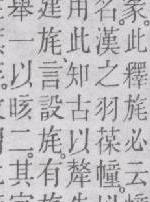 此釋旄必云幢
名。漢之羽葆幢。
用此知古以犛
建旄。言設旄。有旄
舉一以晐二。其